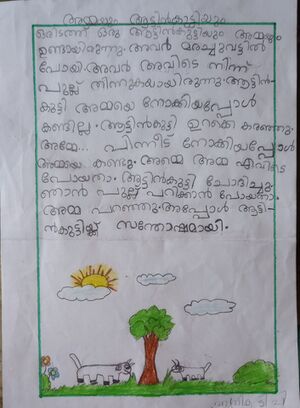 അമ്മയും ആട്ടിൻകുട്ടിയും
ഒരിടത്ത് ഒരു ആട്ടിൻകുട്ടിയും അമ്മയും
ഉണ്ടായിരുന്നു. അവർ മരച്ചുവട്ടിൽ
പോയി. അവർ അവിടെ നിന്ന്
പുല്ല് തിന്നുകയായിരുന്നു. ആട്ടിൻ-
കുട്ടി അമ്മയെ നോക്കിയപ്പോൾ
കണ്ടില്ല. ആട്ടിൻകുട്ടി ഉറക്കെ കരഞ്ഞു.
അമ്മേ... പിന്നീട് നോക്കിയപ്പോൾ
അമ്മയെ കണ്ടു. അമ്മെ അമ്മ എവിടെ
പോയതാ. ആട്ടിൻകുട്ടി ചോദിച്ചു.
ഞാൻ പുല്ല് പറിക്കാൻ പോയതാ.
അമ്മ പറഞ്ഞു. അപ്പോൾ ആട്ടി-
ൻകുട്ടിയ്ക്ക് സന്തോഷമായി.